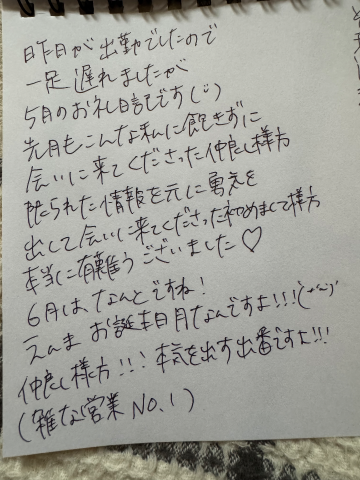 昨日が出勤でしたので
一足遅れましたが
5月のお礼日記です(¨)
先月もこんな私に飽きずに
会いに来てくださった仲良し様方
限られた情報を元に勇気を
出して会いに来てくださった初めまして様方
本当に有難うございました♡
6月は、なんとですね!
えんま お誕生日月なんですよ!!!
仲良し様方!!! 本気を出す出番ですよ!!!
(雑な営業 NO.1)